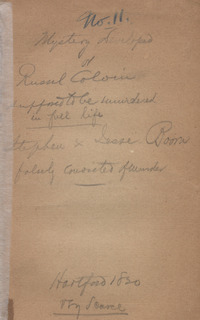 No. 11.
Mystery Developed
of
Russel Colvin
supposed to be murdered
in full life
Stephen & Jesse Boorn
falsely convicted of murder
Hartford 1820